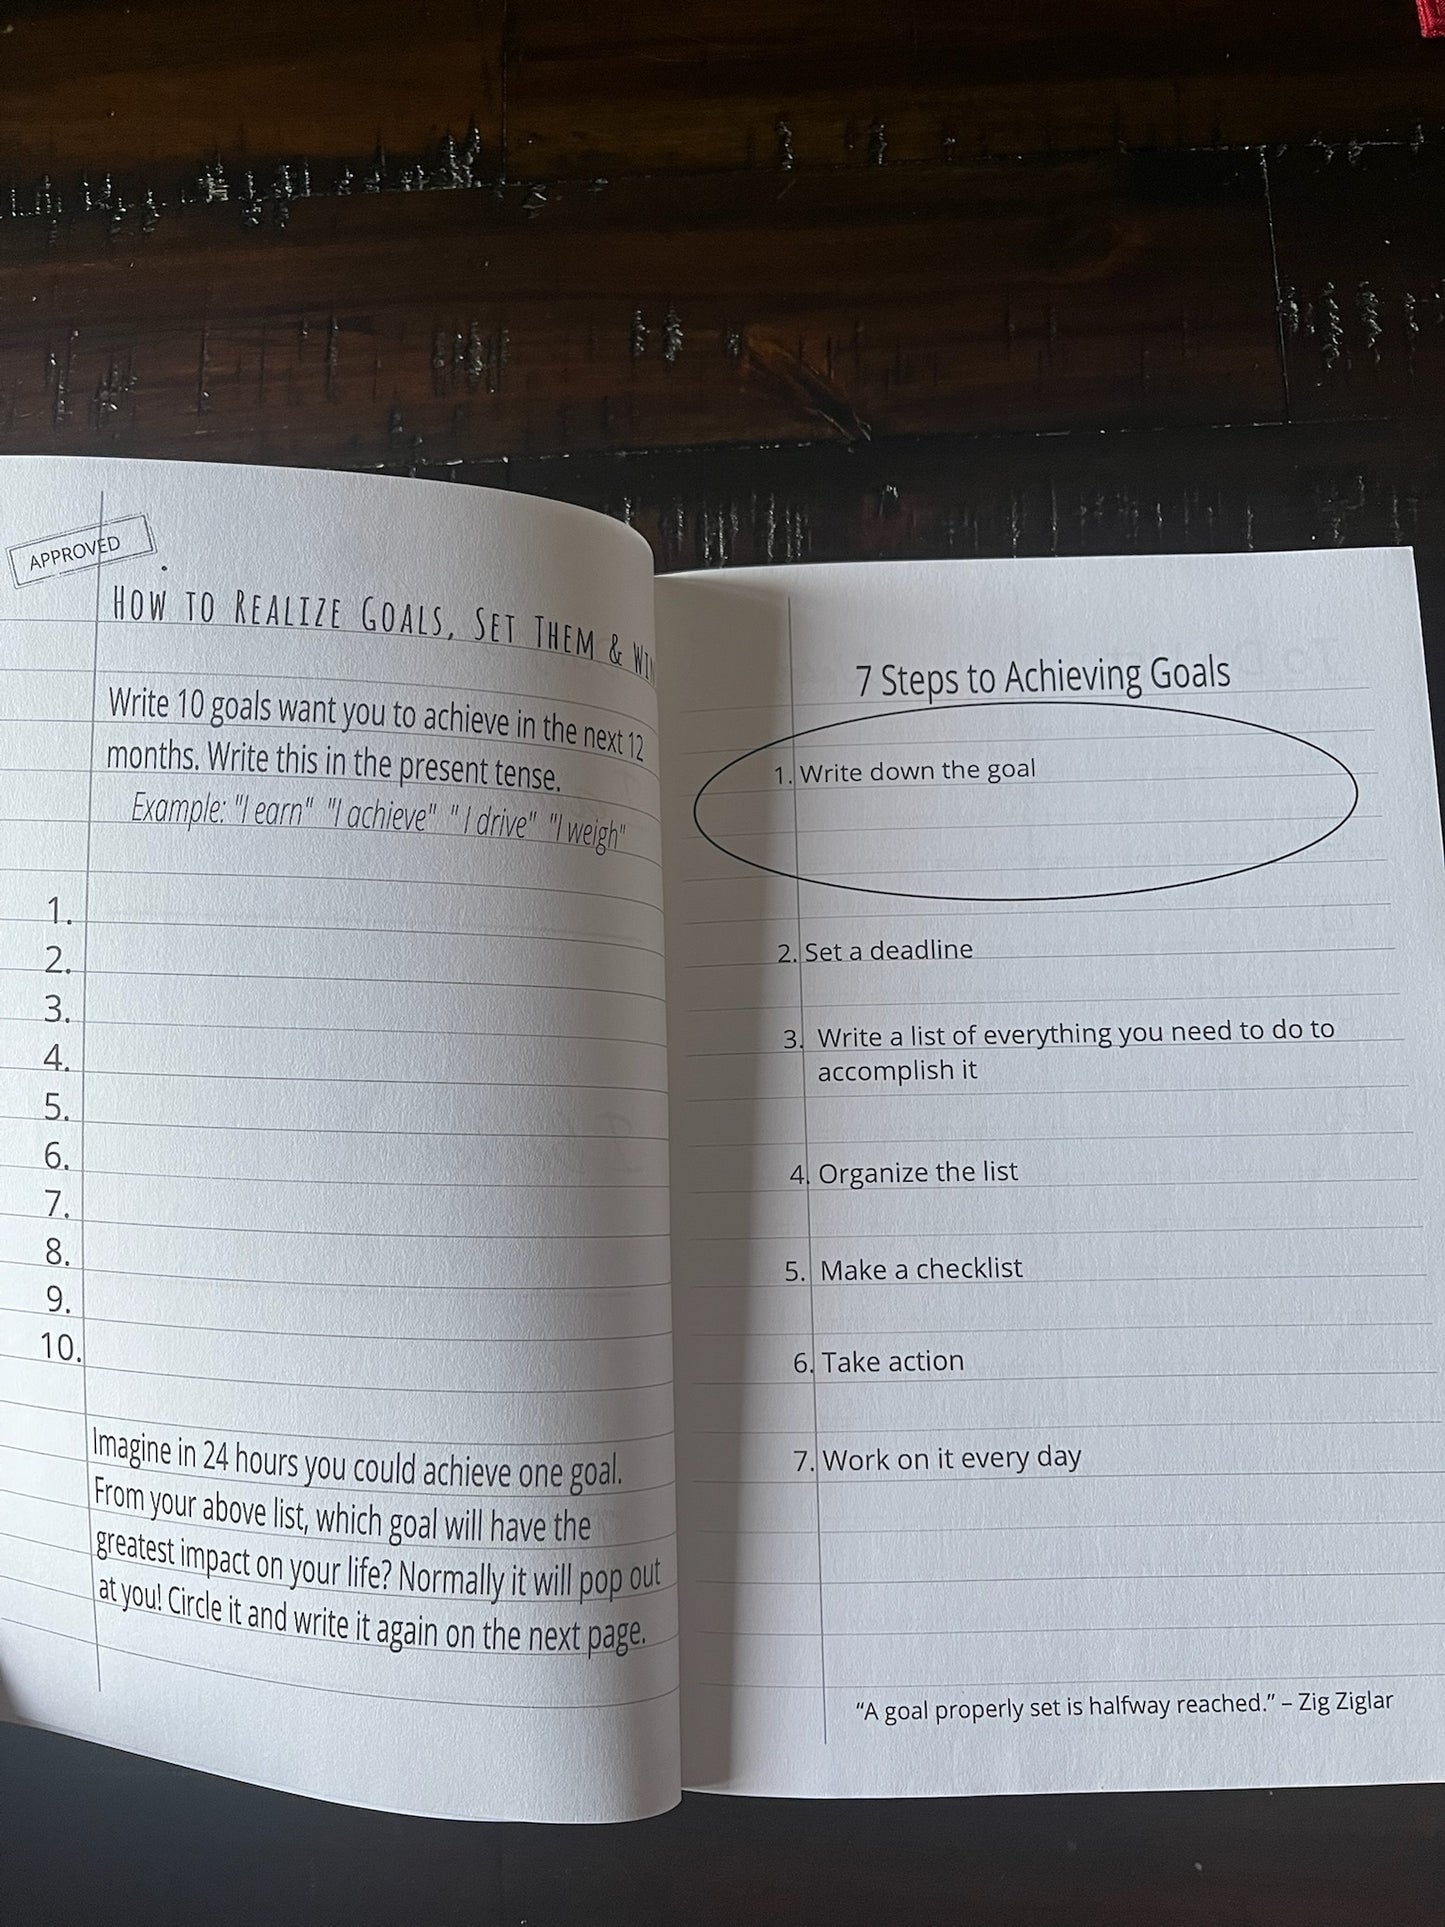 APPROVED
HOW TO REALIZE GOALS, SET THEM &
Write 10 goals want you to achieve in the next 12
months. Write this in the present tense.
Example: "I earn" "I achieve" " I drive" "I weigh"
1.
2.
3.
4.
5.
6.
7.
8.
9.
10.
Imagine in 24 hours you could achieve one goal.
From your above list, which goal will have the
greatest impact on your life? Normally it will pop out
at you! Circle it and write it again on the next page.
7 Steps to Achieving Goals
1. Write down the goal
2. Set a deadline
3. Write a list of everything you need to do to
accomplish it
4. Organize the list
5. Make a checklist
6. Take action
7. Work on it every day
“A goal properly set is halfway reached.” – Zig Ziglar